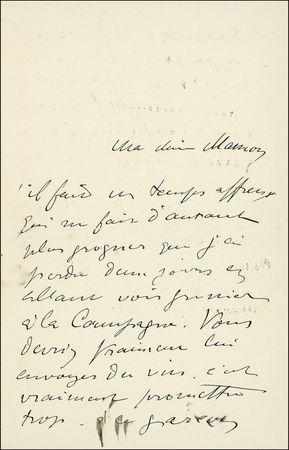 Ma chère Maman
il fait un temps affreux
qui me fait d'autant
plus grogner que j'ai
perdu deux jours en
allant voir
à la Campagne. Vous
devriez vraiment lui
envoyer du vin. c'est
vraiment promettre
trop.